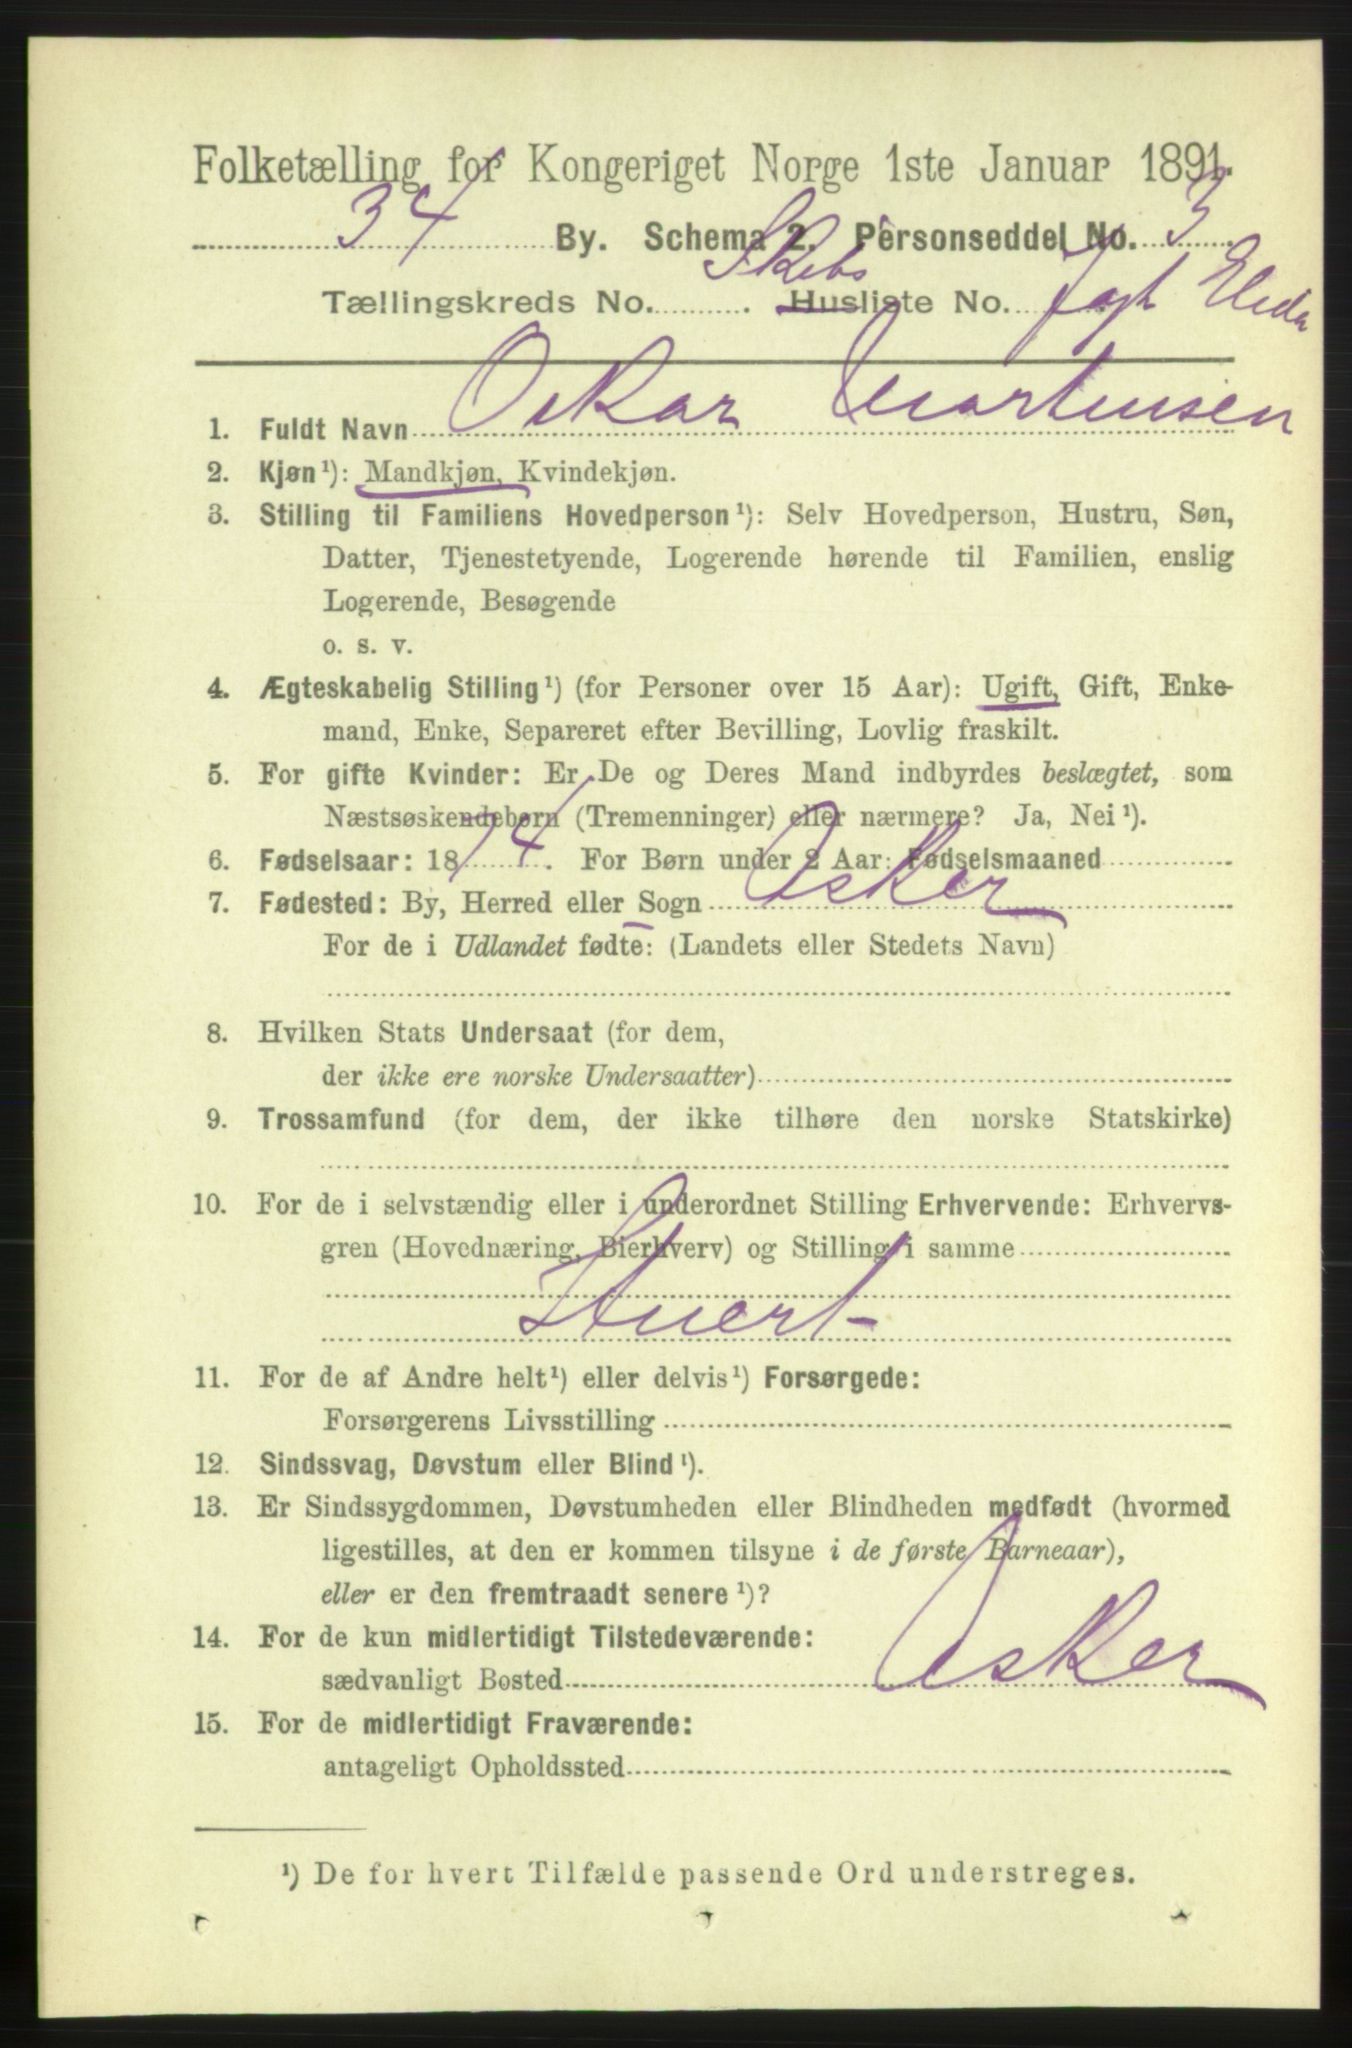 Folketælling for Kongeriget Norge 1ste Januar 1891.
34 By. Schema 2. Personseddel No. 3
Tællingskreds No. . Skibs Husliste No. Jagt
1. Fuldt Navn Oskar Martinsen
2. Kjøn¹): Mandkjøn, Kvindekjøn.
3. Stilling til Familiens Hovedperson¹): Selv Hovedperson, Hustru, Søn,
Datter, Tjenestetyende, Logerende hørende til Familien, enslig
Logerende, Besøgende
o. s. v.
4. Ægteskabelig Stilling¹) (for Personer over 15 Aar): Ugift, Gift, Enke-
mand, Enke, Separeret efter Bevilling, Lovlig fraskilt.
5. For gifte Kvinder: Er De og Deres Mand indbyrdes beslægtet, som
Næstsøskendebørn (Tremenninger) eller nærmere? Ja, Nei¹).
6. Fødselsaar: 1874. For Børn under 2 Aar: Fødselsmaaned
7. Fødested: By, Herred eller Sogn Asker
For de i Udlandet fødte: (Landets eller Stedets Navn)
8. Hvilken Stats Undersaat (for dem,
der ikke ere norske Undersaatter)
9. Trossamfund (for dem, der ikke tilhøre den norske Statskirke)
10. For de i selvstændig eller i underordnet Stilling Erhvervende: Erhvervs-
gren (Hovednæring, Bierhverv) og Stilling i samme
Stuert
11. For de af Andre helt¹) eller delvis¹) Forsørgede:
Forsørgerens Livsstilling
12. Sindssvag, Døvstum eller Blind¹).
13. Er Sindssygdommen, Døvstumheden eller Blindheden medfødt (hvormed
ligestilles, at den er kommen tilsyne i de første Barneaar),
eller er den fremtraadt senere¹)?
14. For de kun midlertidigt Tilstedeværende:
sædvanligt Bosted Asker
15. For de midlertidigt Fraværende:
antageligt Opholdssted
¹) De for hvert Tilfælde passende Ord understreges.